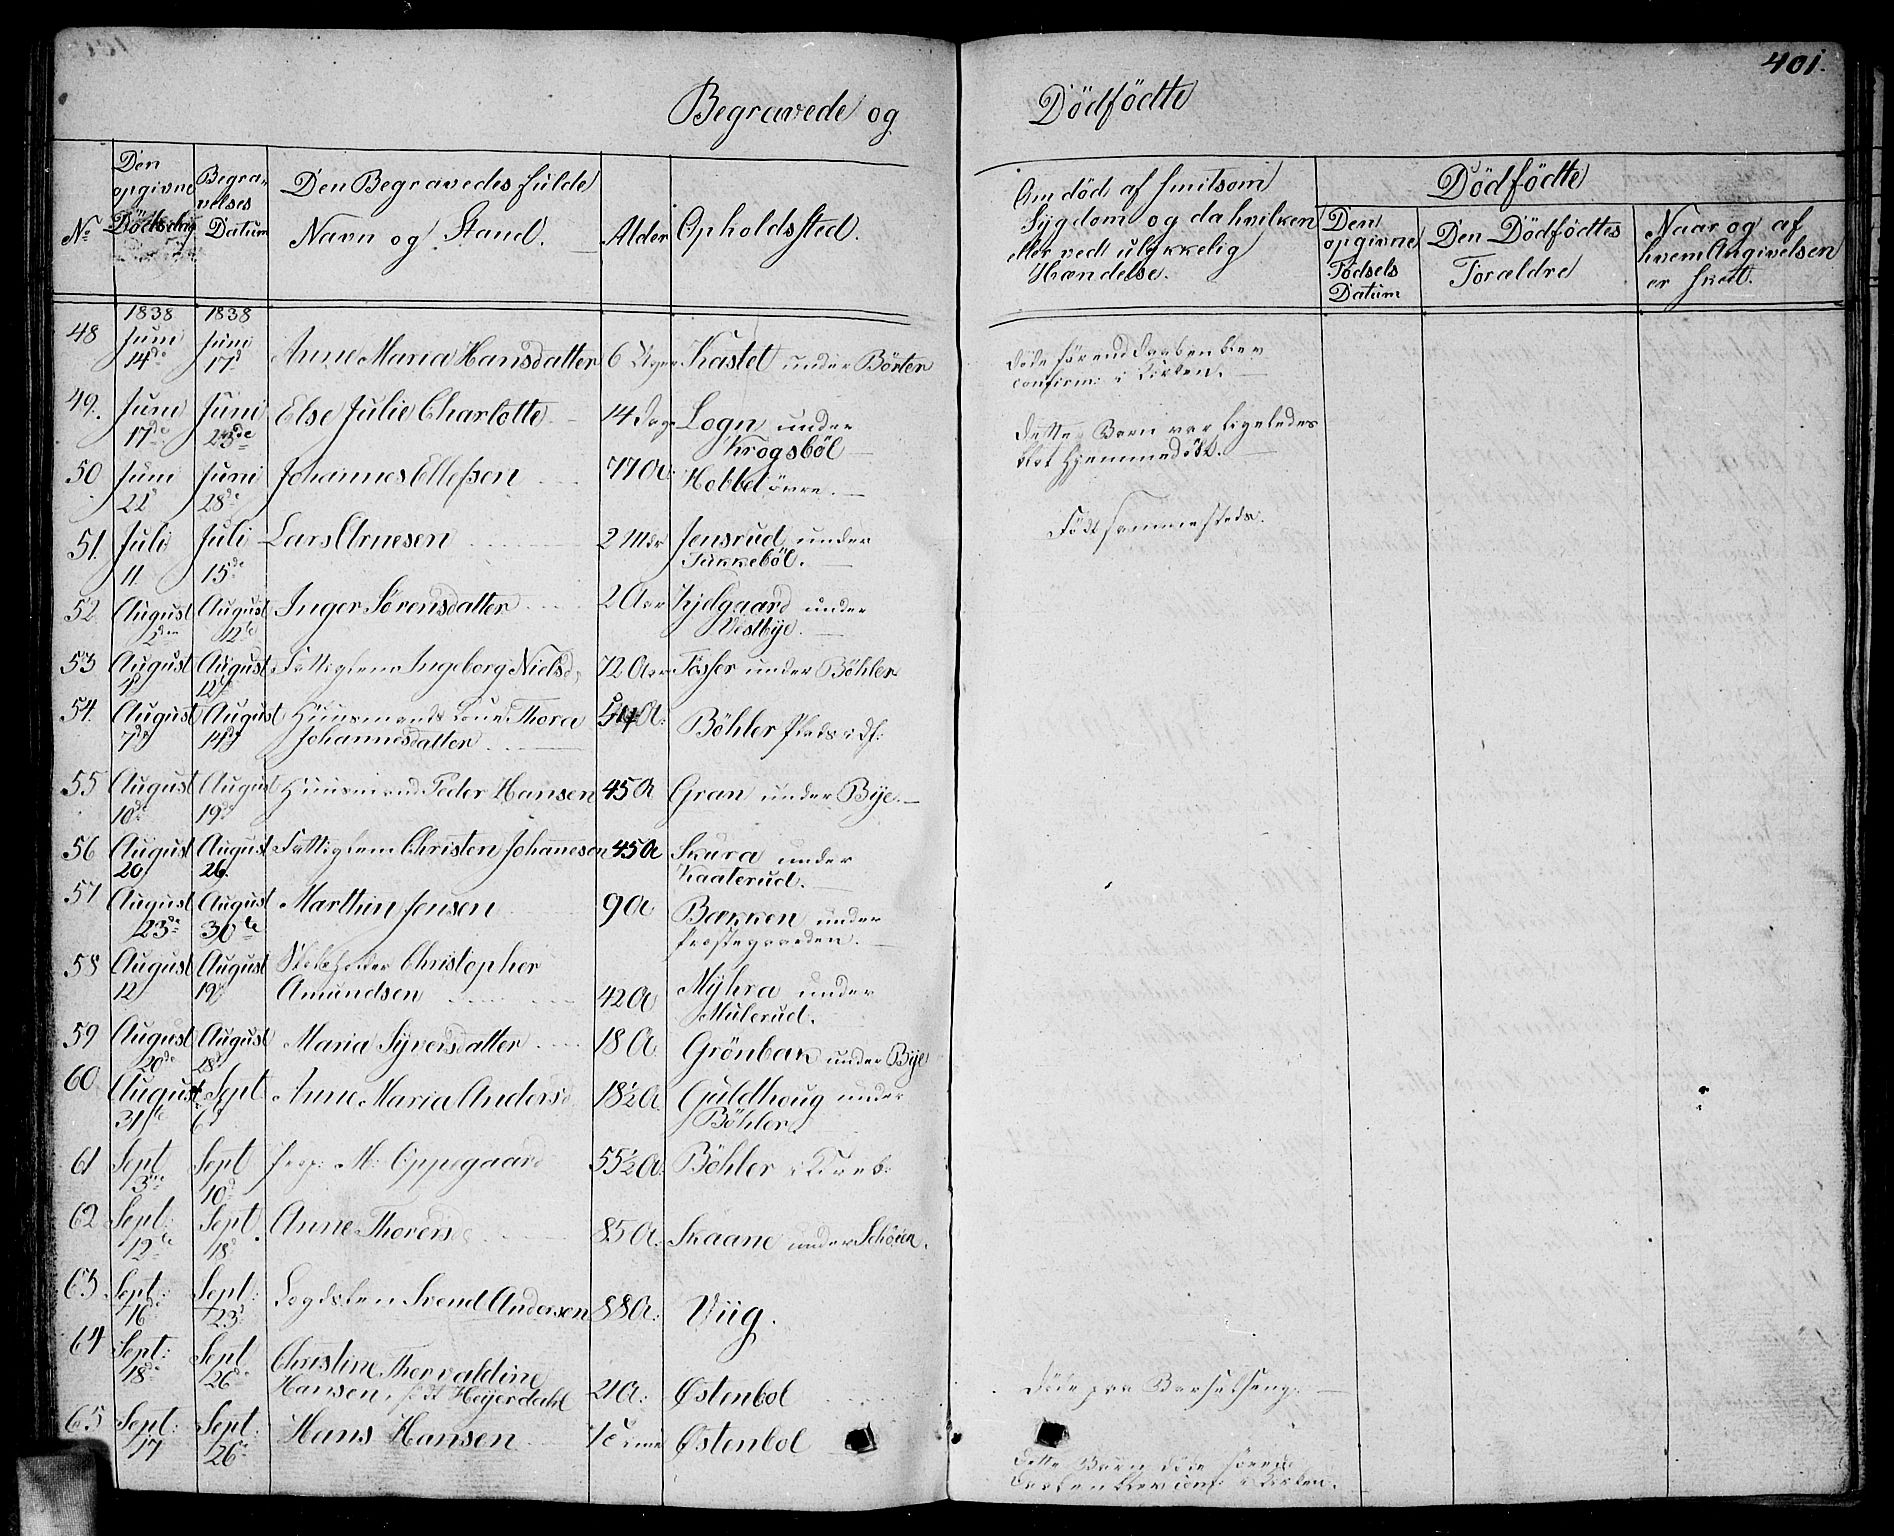 401.
Begravede og Dödfödte
No
Den opgivne Dödsdag
Begravelses Datum
Den Begravedes fulde Navn og Stand.
Alder
Opholdsted.
Om död af smitsom Sygdom og da hvilken eller vedt ulykkelig Hændelse.
Dödfödte
Den opgivne Födsels Datum
Den Dödfödtes Forældre
Naar og af hvem Angivelsen er skett.
1838 1838
48 Juni 14de Juni 17d Anne Maria Hansdatter 6 Kastet under Börter
Döde förend Daaben blev
confirm: i Kirken.
49. Juni 17de Juni 23de Else Julie Charlotte 14 Dage Logn under
Krogsböl
Dette Barn var ligeledes
blot hjemmedöbt.
50 Juni 22d Juni 28de Johannes Ellefsen 77 A: Hobbel övre.
51. Juli 11. Juli 15de Lars Arnesen 2 Mdr Jensrud under
Tukkeböl.
Födt sammesteds.
52. August 2den August 12te Inger Sörensdatter 2 Aar Kjelgaard under
Vestbye.
53 August August 12te Fattiglem Ingeborg Nielsd. 72 Aar Tosser under Böhler
54. August 7de August 14de Huusmands Kone Thora
Johannesdatter 54 A: Böhler Plads i Df:
55 August 10de August 19de Huusmand Peder Hansen 45 A Gran under Bye.
56 August 20 August 26. Fattiglem Christen Johannesen 45 A Skura under
Kaaterud.
57 August 23de August 30te Marthin Jensen 9 A Bækken under
Præstegaarden.
58 August 12 August 19de Christopher
Amundsen 42 A Myhra under
Mulerud.
59 August 20de August 28d Maria Syversdatter 18 A. Grönbak under Bye
60 August 31te Sept 6d Anne Maria Andersd 18½ A. Guldhoug under
Böhler.
61 Sept 3die Sept 10d Prop: M: Oppegaard 55½ A. Böhler i Kraab:
62 Sept: 12te Sept 18d. Anne Thorersd 85 A. Skaane under Schöien.
63 Sept: 16de Sept: 23d Logdslem Svend Andersen 88 A: Viig.
64 Sept: 18de Sept 26de Christine Thorvaldine
Hansen, födt Heyerdahl 21 A: Østenbol
Döde paa Barselseng.
65 Sept: 17 Sept: 26de Hans Hansen Østenbol
Dette Barn döde förend
Daaben blev conf: i Kirken.